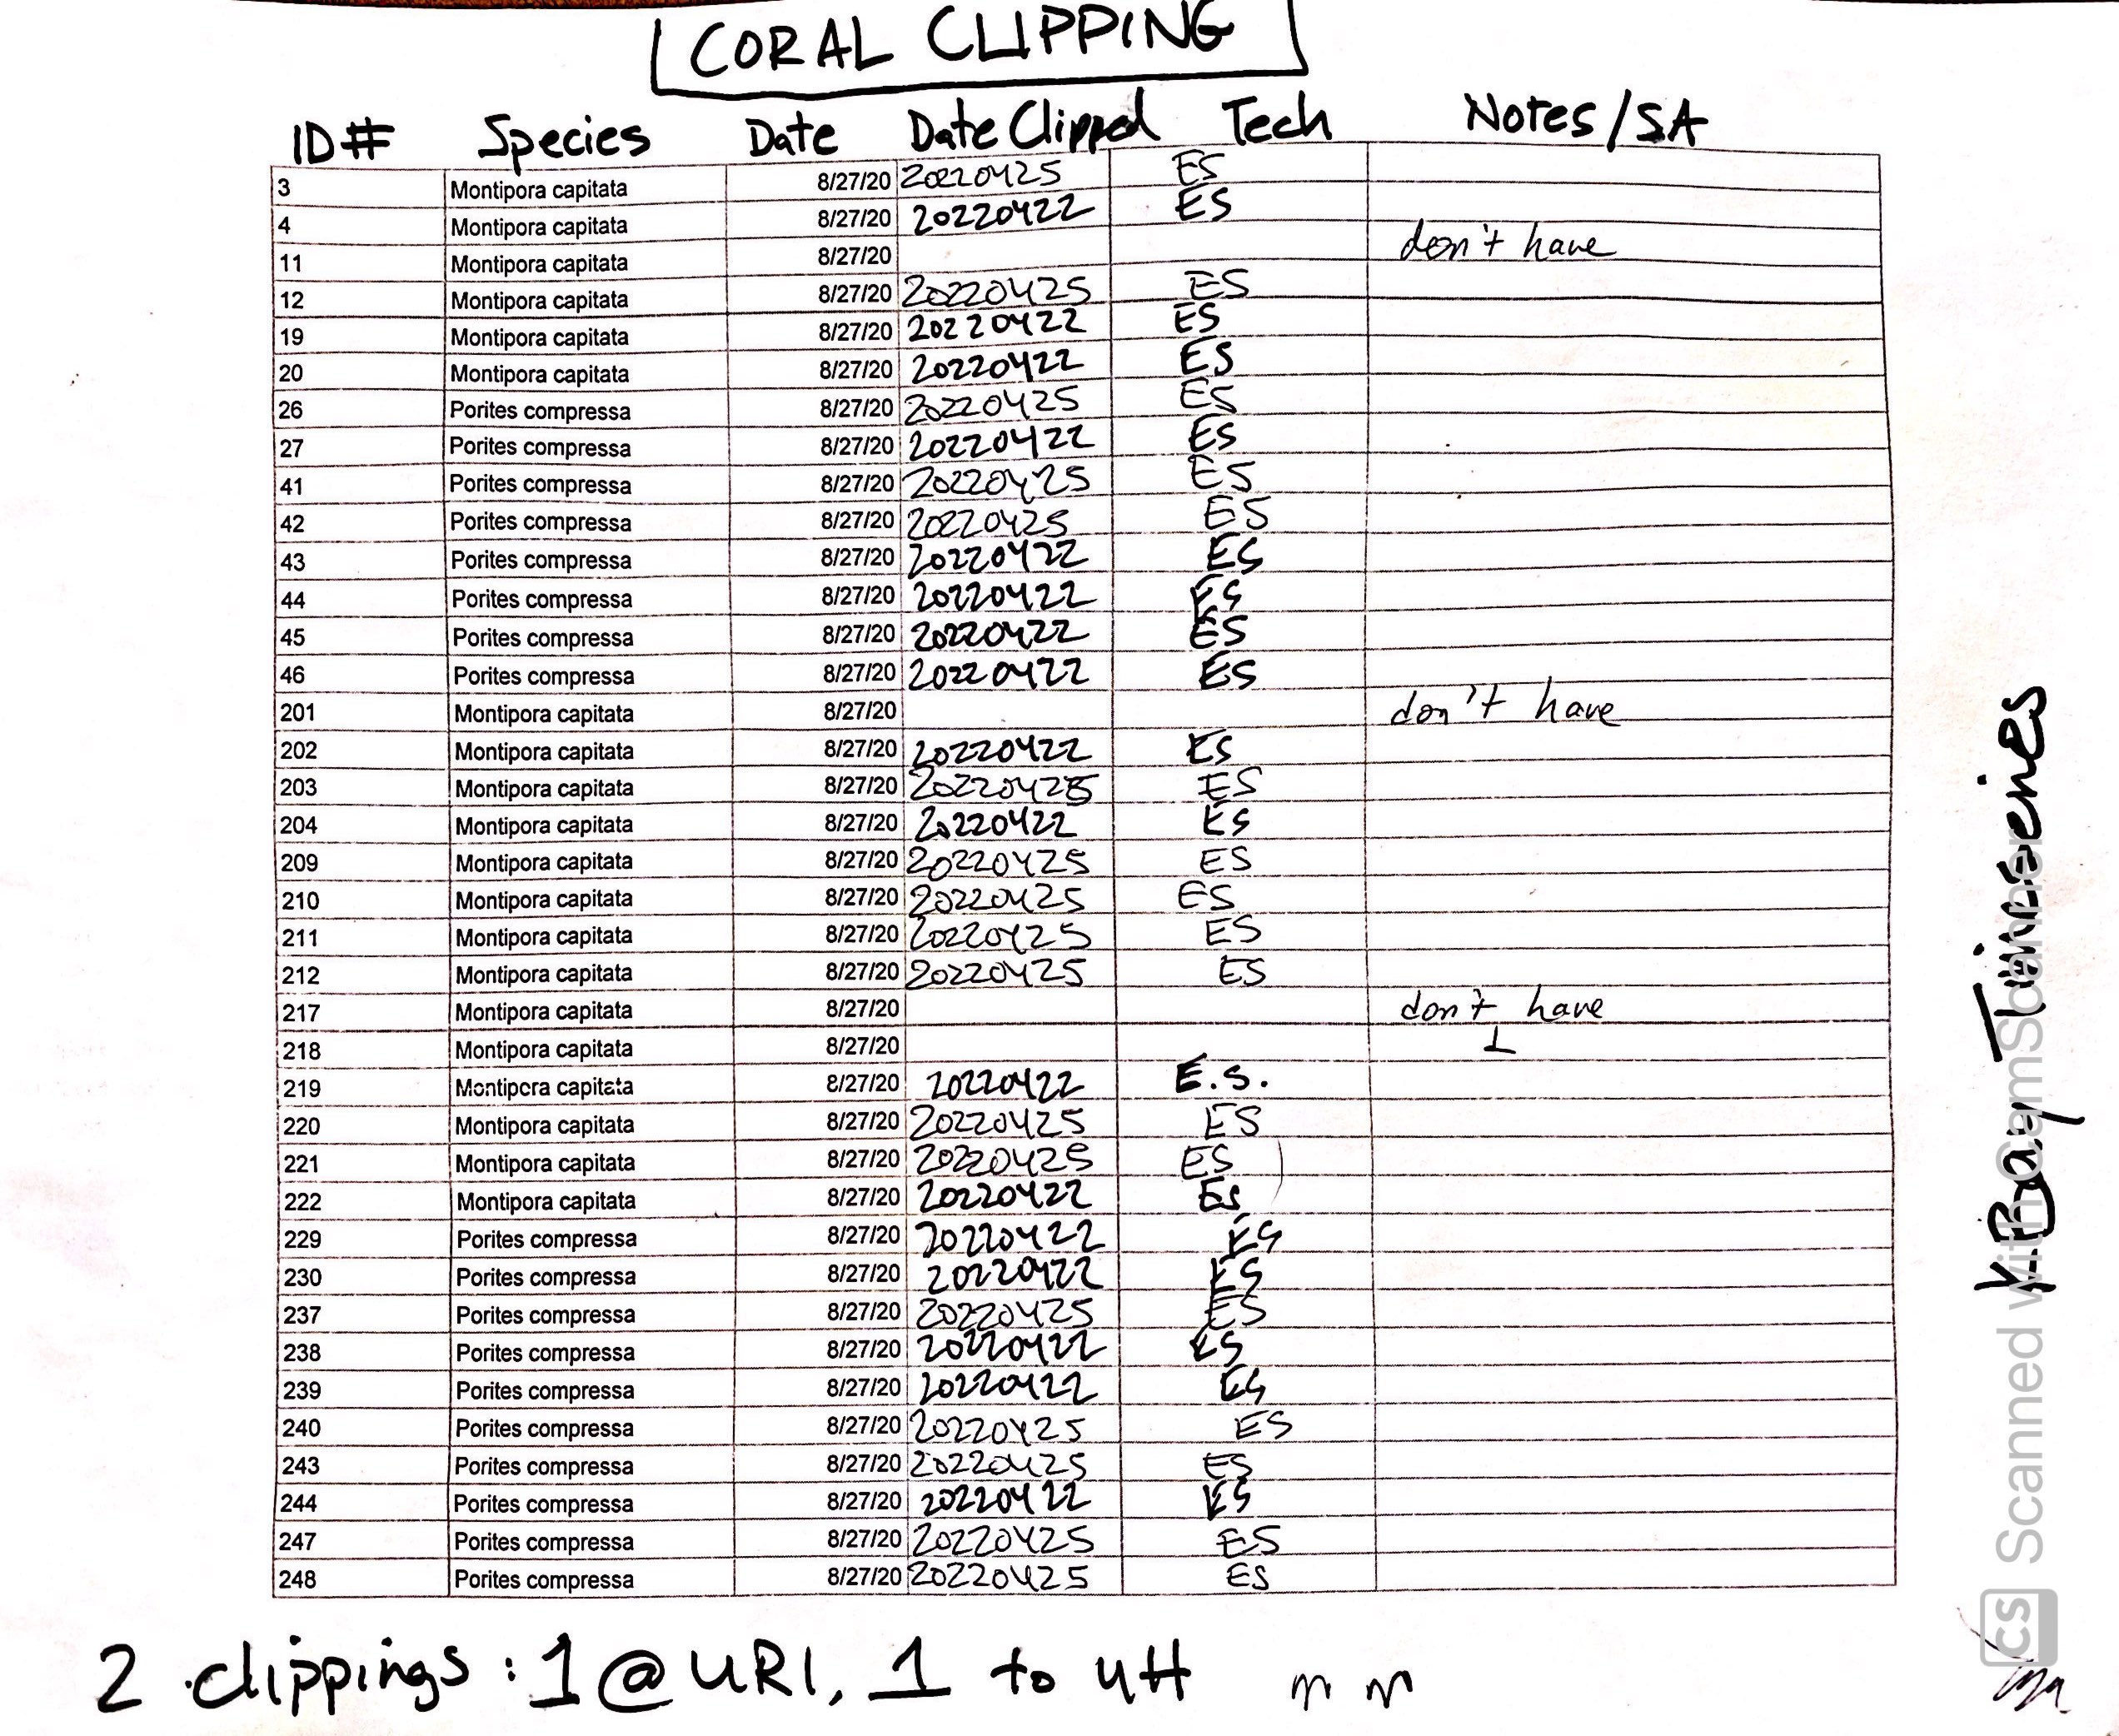 CORAL CLIPPING
ID# Species Date Date Clipped Tech Notes/SA
3 Montipora capitata 8/27/20 20220425 ES
4 Montipora capitata 8/27/20 20220422 ES
11 Montipora capitata 8/27/20 don't have
12 Montipora capitata 8/27/20 20220425 ES
19 Montipora capitata 8/27/20 20220422 ES
20 Montipora capitata 8/27/20 20220422 ES
26 Porites compressa 8/27/20 20220425 ES
27 Porites compressa 8/27/20 20220422 ES
41 Porites compressa 8/27/20 20220425 ES
42 Porites compressa 8/27/20 20220425 ES
43 Porites compressa 8/27/20 20220422 ES
44 Porites compressa 8/27/20 20220422 ES
45 Porites compressa 8/27/20 20220422 ES
46 Porites compressa 8/27/20 20220422 ES
201 Montipora capitata 8/27/20 don't have
202 Montipora capitata 8/27/20 20220422 ES
203 Montipora capitata 8/27/20 20220425 ES
204 Montipora capitata 8/27/20 20220422 ES
209 Montipora capitata 8/27/20 20220425 ES
210 Montipora capitata 8/27/20 20220425 ES
211 Montipora capitata 8/27/20 20220425 ES
212 Montipora capitata 8/27/20 20220425 ES
217 Montipora capitata 8/27/20 don't have
218 Montipora capitata 8/27/20
219 Montipora capitata 8/27/20 20220422 E.S.
220 Montipora capitata 8/27/20 20220425 ES
221 Montipora capitata 8/27/20 20220425 ES
222 Montipora capitata 8/27/20 20220422 ES
229 Porites compressa 8/27/20 20220422 ES
230 Porites compressa 8/27/20 20220422 ES
237 Porites compressa 8/27/20 20220425 ES
238 Porites compressa 8/27/20 20220422 ES
239 Porites compressa 8/27/20 20220422 ES
240 Porites compressa 8/27/20 20220425 ES
243 Porites compressa 8/27/20 20220425 ES
244 Porites compressa 8/27/20 20220422 ES
247 Porites compressa 8/27/20 20220425 ES
248 Porites compressa 8/27/20 20220425 ES
2 clippings: 1 @ URI, 1 to UH
K-Bay Timeseries
CS Scanned with CamScanner